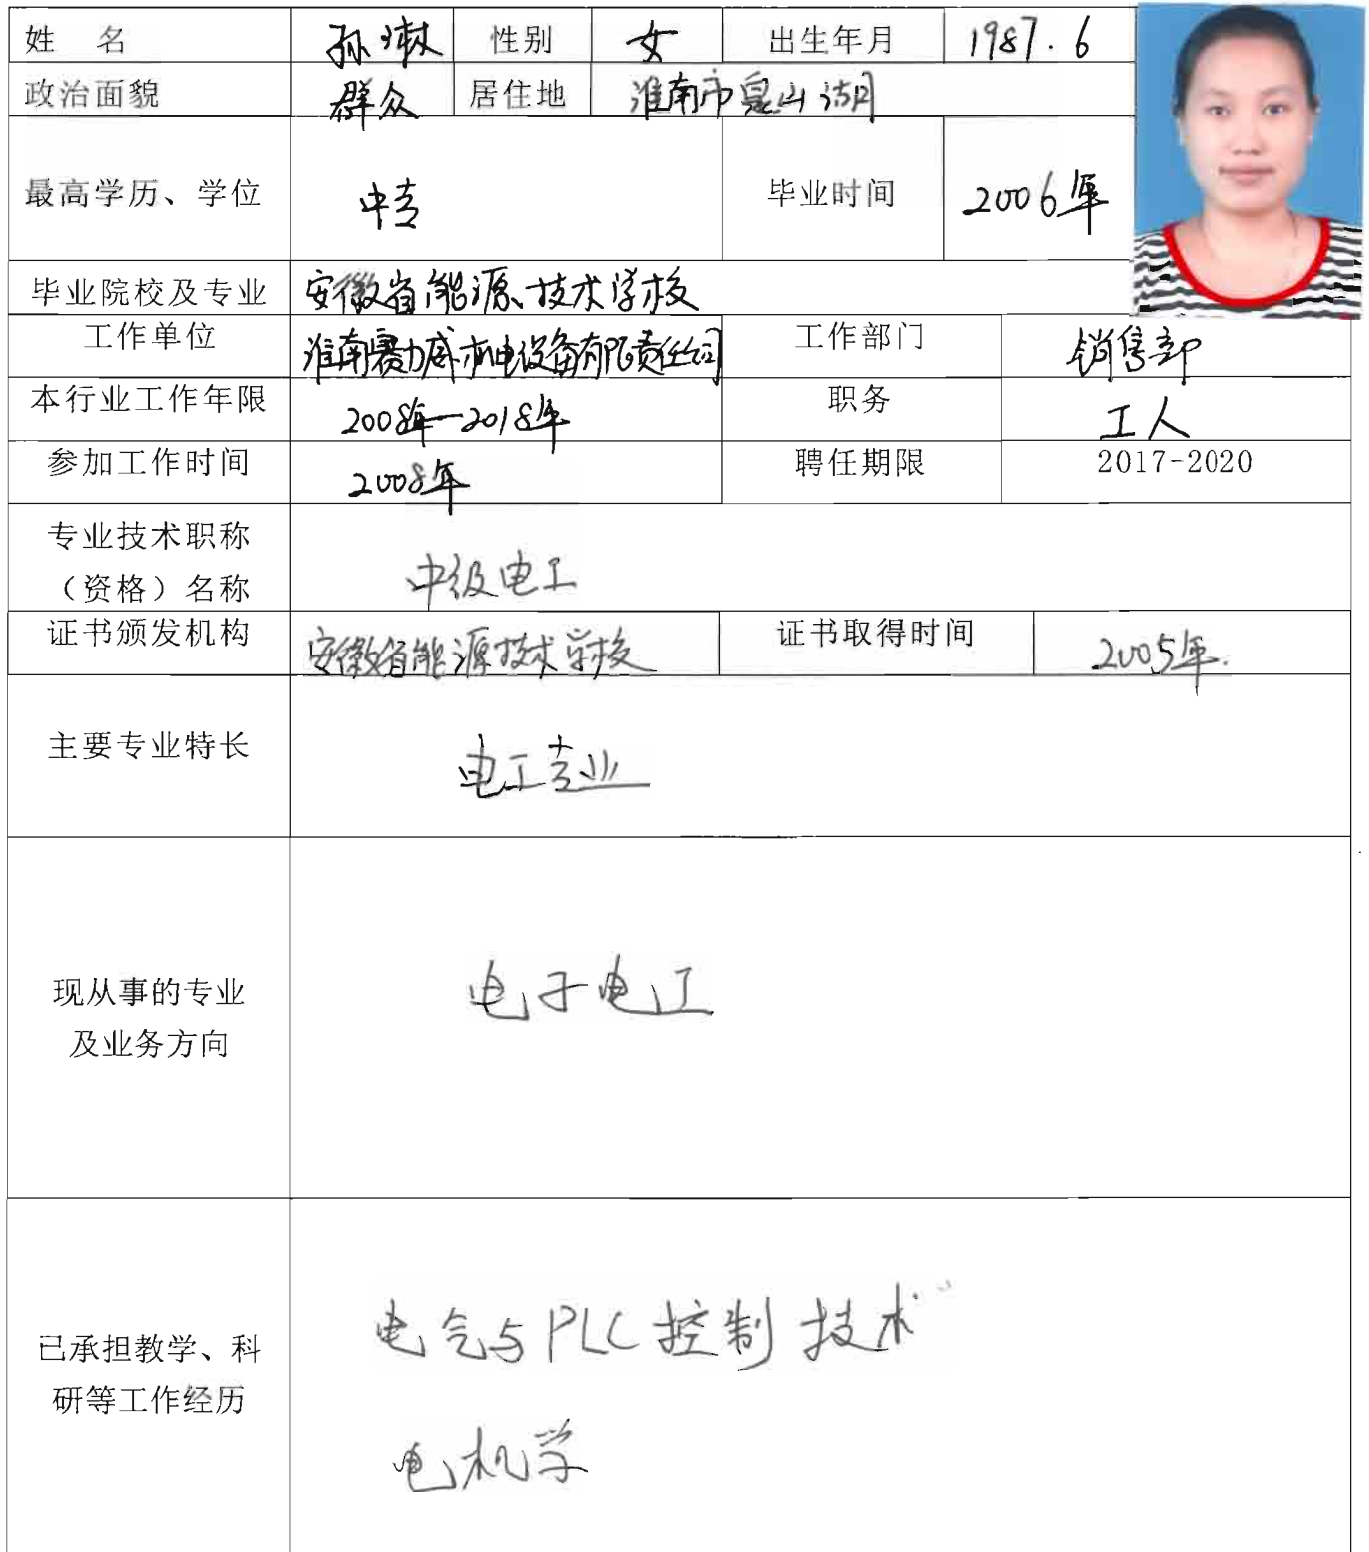 姓 名 孙琳 性别 女 出生年月 1987.6
政治面貌 群众 居住地 淮南市泉山湖
最高学历、学位 中专 毕业时间 2006年
毕业院校及专业 安徽省能源技术学校
工作单位 淮南赛力威机电设备有限责任公司 工作部门 销售部
本行业工作年限 2008年—2018年 职务 工人
参加工作时间 2008年 聘任期限 2017-2020
专业技术职称
（资格）名称 中级电工
证书颁发机构 安徽省能源技术学校 证书取得时间 2005年.
主要专业特长 电工专业
现从事的专业
及业务方向
电子电工
已承担教学、科
研等工作经历
电气与PLC控制技术
电机学